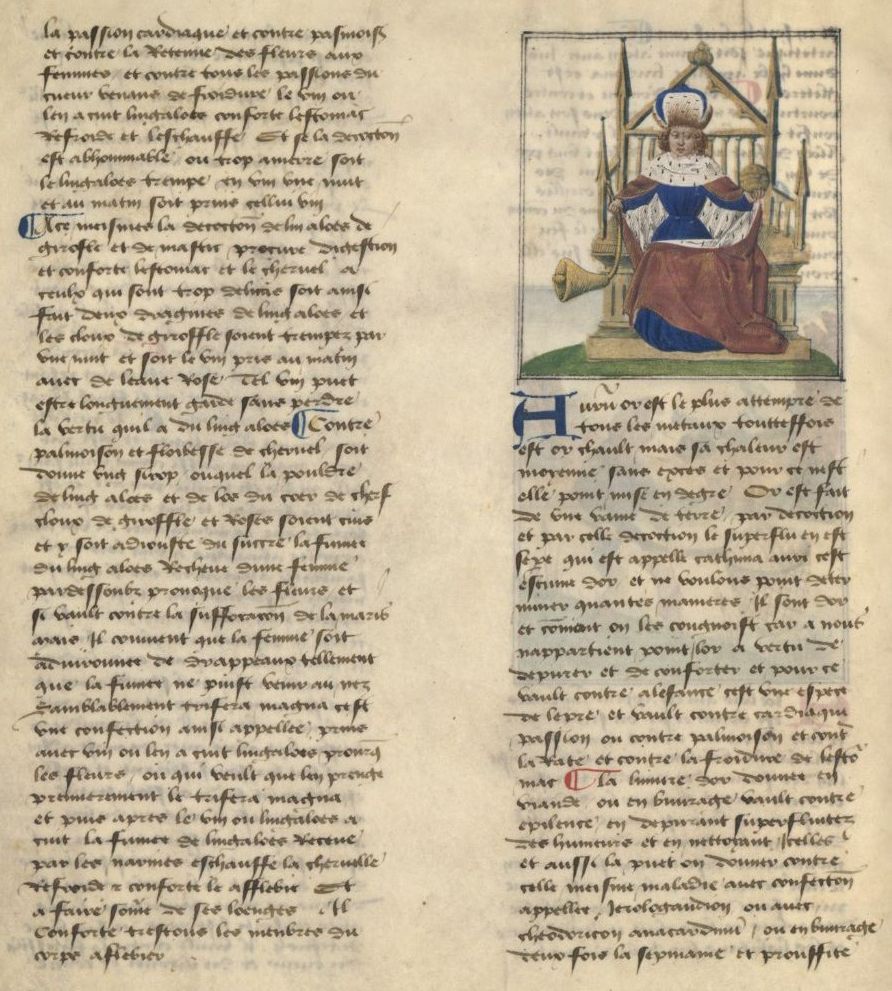 la passion cardiaque et contre pasmoison
et contre la Retenue des fleurs aux
femmes et contre tous les passions du
cueur venans de froidure le vin ou
len a cuit lingaloes conforte lestomac
Refroide et leschauffe Et se la decoction
est abhominable ou trop amerre soit
le lingaloes trempe en vin une nuit
et au matin soit prins cellui vin
A ce meismes la decoction de lin aloes de
girofle et de mastic procure digestion
et conforte lestomac et le chervel a
ceulx qui sont trop delies soit ainsi
fait deux dragmes de ling aloes et
les cloux de giroffle soient trempez par
une nuit et soit le vin pris au matin
avec de leaue Rose Tel vin puet
estre longuement garde sans perdre
la vertu quil a du ling aloes Contre
palmoison et floibesse de chervel soit
donne ung sirop ouquel la pouldre
de ling aloes et de los du coer de cherf
cloux de giroffle et Roses soient cuis
et y soit adiouste du succre la fumee
du ling aloes Recheue dune femme
pardessoubz prouoque les fleurs et
si vault contre la suffocacon de la maris
mais Il conuient que la femme soit
aduironnee de drappeaux tellement
que la fumee ne puist venir au nez
Samblablement trifera magna cest
une confection ainsi appellee prinse
auec vin ou len a cuit lingaloes prouoq
les fleurs ou qui veult que len prenge
premierement le trifera magna
et puis apres le vin ou lingaloes a
cuit la fumee de lingaloes Receue
par les narines eschauffe la chervelle
Refroide et conforte le afflebie Et
a faire some de ses loenges Il
Conforte trestous les menbres du
corps aflebiez
Auru or est le plus attempre de
tous les metaux toutteffois
est or chault mais sa chaleur est
moyenne sans exces et pour ce nest
elle point mise en degre Or est fait
de une vaine de terre par decoction
et par celle decoction le superflu en est
sepe qui est appelle cathima auri cest
escume dor et ne voulons point deter
miner quantes manieres Il sont dor
et coment on les congnoist car a nous
nappartient point lor a vertu de
depurer et de conforter et pour ce
vault contre alefance cest une espece
de lepre et vault contre cardiaque
passion ou contre palmoison et cont
la Rate et contre la froidure de lesto
mac La limure dor donnee en
viande ou en buurage vault contre
epilence en depurant superfluitez
des humeurs et en nettoyant Icelles
et aussi la puet on donner contre
celle meisme maladie auec confection
appellee Ierologaudion ou auec
theodoricon anacardinu ou en buurage
deux fois la sepmaine et prouffite